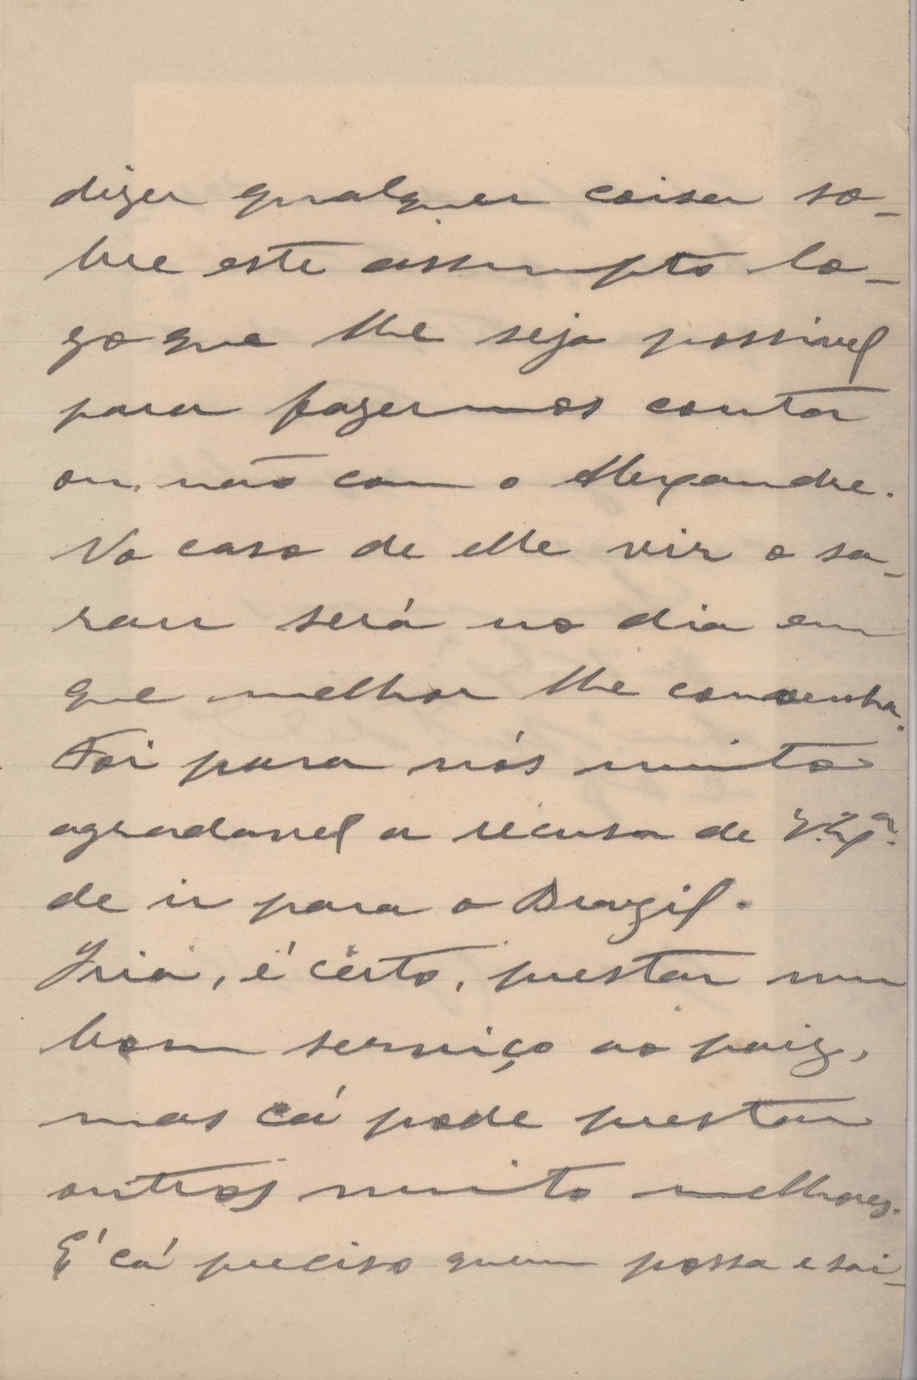 dizer qualquer coisa so-
bre este assumpto lo-
go que lhe seja possivel
para fazermos contar
ou não com o Alexandre.
No caso de elle vir o sa-
rau será no dia em
que melhor lhe convenha.
Foi para nós muito
agradavel a recusa de V. Exª.
de ir para o Brazil.
Iria, é cêrto, prestar um
bom serviço ao paiz,
mas cá pode prestar
outros muito melhores.
E' cá preciso quem possa e sai-